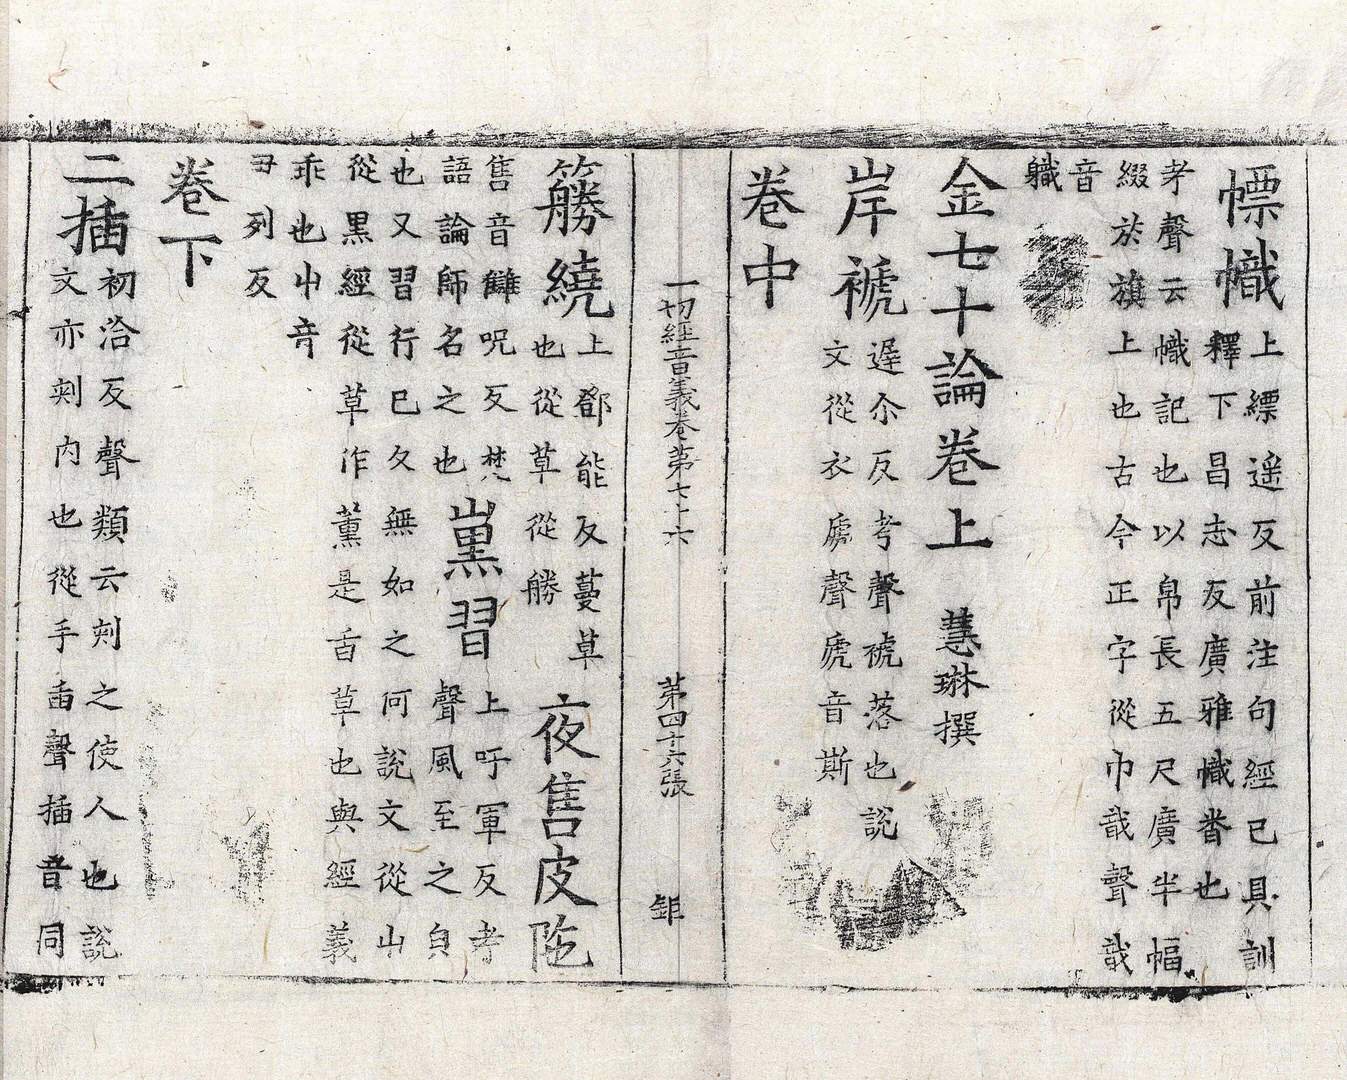 幖幟上縹遥反前注句經已具訓
釋下昌志反廣雅幟畨也
考聲云幟記也以帛長五尺廣半幅
綴於旗上也古今正字從巾戠聲戠
音
軄
金七十論卷上 慧琳撰
岸褫遟尒反考聲褫落也說
文從衣虒聲虒音斯
卷中
一切經音義卷第七十六 第四十六張 鉅
籐繞上鄧能反蔓草
也從草從勝
夜售皮陁
售音讎呪反梵
語論師名之也
熏習上吁軍反考
聲風至之皃
也又習行已久無如之何說文從屮
從黑經從草作薰是香草也與經義
乖也屮音
丑列反
卷下
二插初洽反聲類云刾之使人也說
文亦刾內也從手臿聲插音同